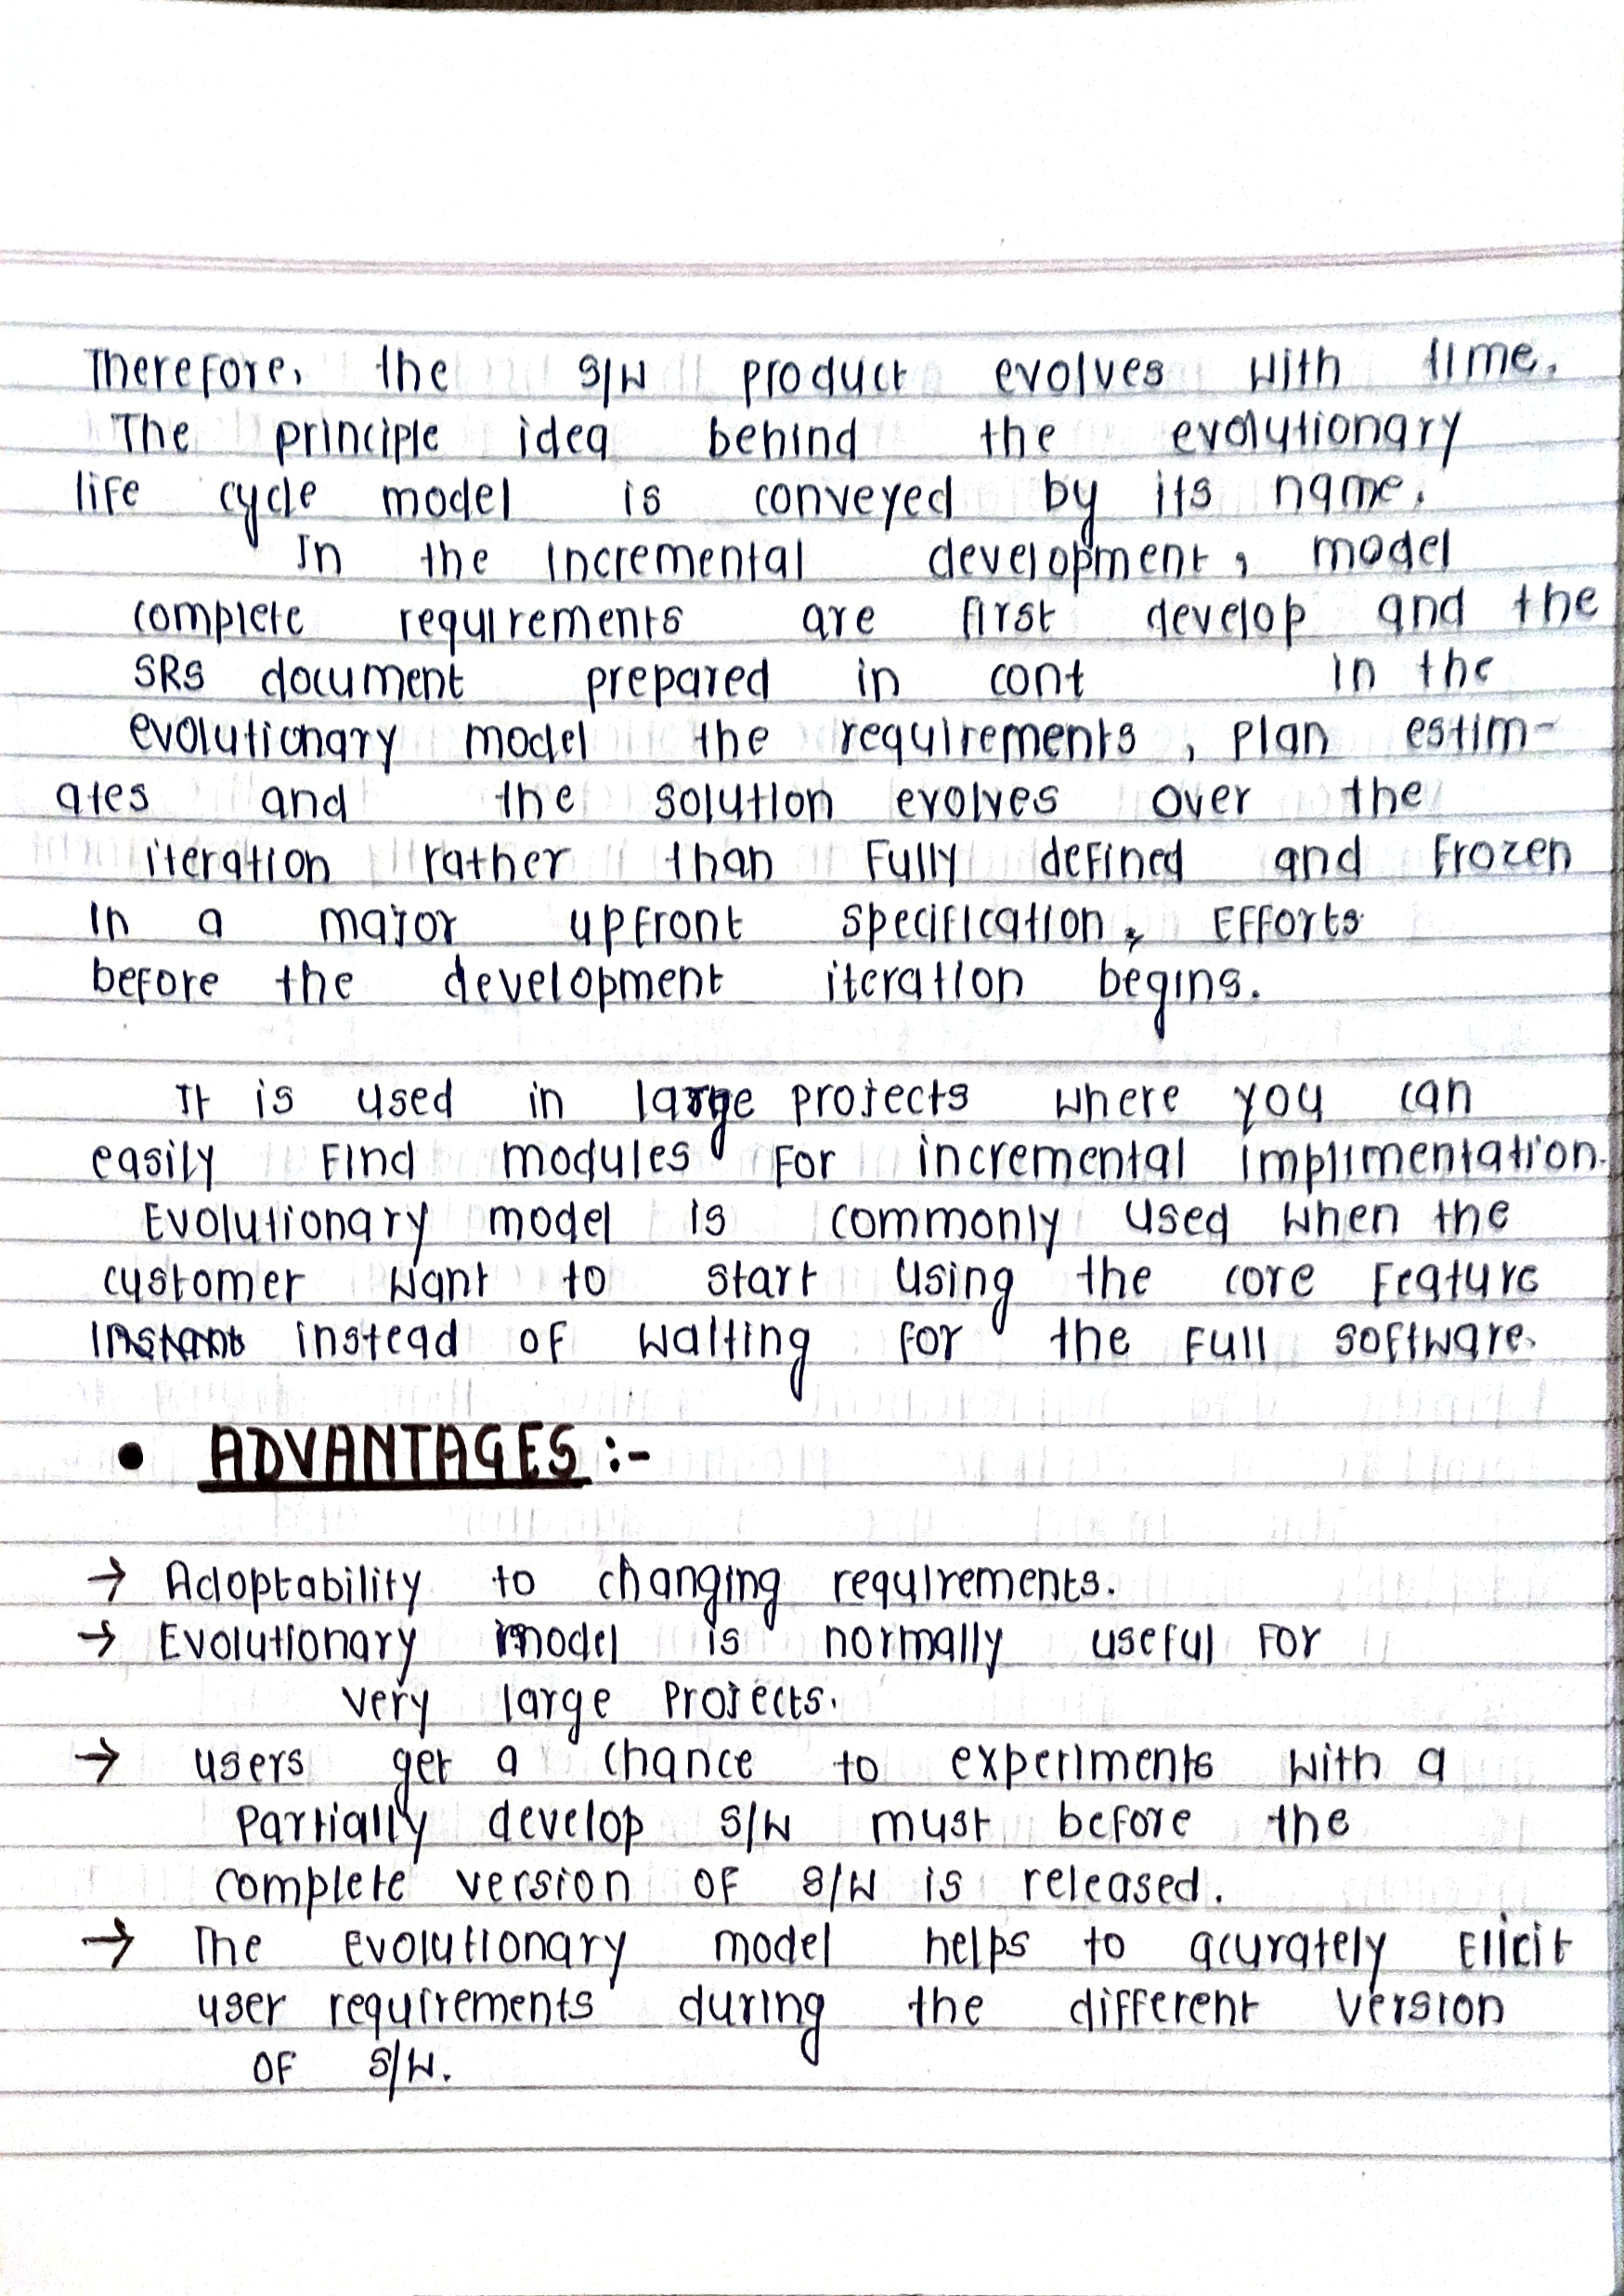 Therefore, the S/W product evolves with time.
The principle idea behind the evolutionary
life cycle model is conveyed by its name.
In the incremental development, model
complete requirements are first develop and the
SRS document prepared in cont in the
evolutionary model the requirements, plan estim-
ates and the solution evolves over the
iteration rather than fully defined and frozen
in a major upfront specification, Efforts
before the development iteration begins.
It is used in large projects where you can
easily find modules for incremental implimentation.
Evolutionary model is commonly used when the
customer want to start using the core feature
instead of waiting for the full software.
• ADVANTAGES :-
→ Adoptability to changing requirements.
→ Evolutionary model is normally useful for
very large projects.
→ users get a chance to experiments with a
partially develop S/W must before the
complete version of S/W is released.
→ The evolutionary model helps to acurately Elicit
user requirements during the different version
of S/W.